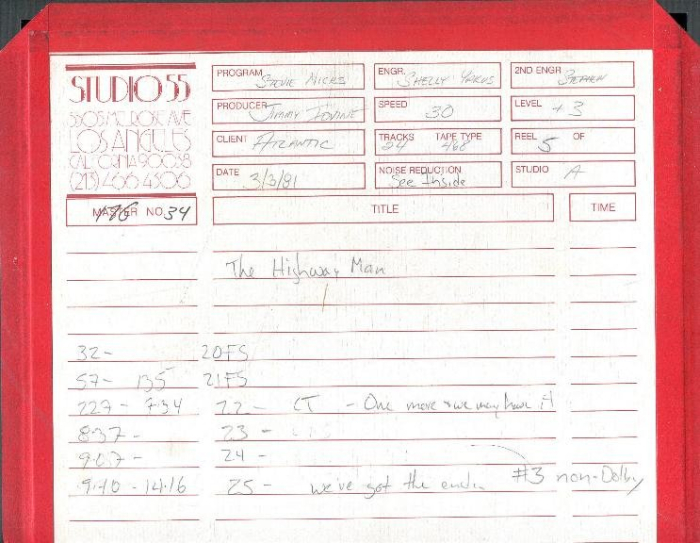 STUDIO 55
5505 MELROSE AVE
LOS ANGELES
CALIFORNIA 90038
(213) 466 4306
PROGRAM Stevie Nicks
ENGR. Shelly Yakus
2ND ENGR Stephen
PRODUCER Jimmy Iovine
SPEED 30
LEVEL +3
CLIENT Atlantic
TRACKS 24 TAPE TYPE 468
REEL 5 OF
DATE 3/3/81
NOISE REDUCTION See Inside
STUDIO A
MASTER NO. 34
TITLE
TIME
The Highway Man
32- 20FS
57- 135 21FS
227- 734 22- CT - One more & we may have it
837- 23-
24-
940 - 1416 25- we've got the end. #3 non-Dolby